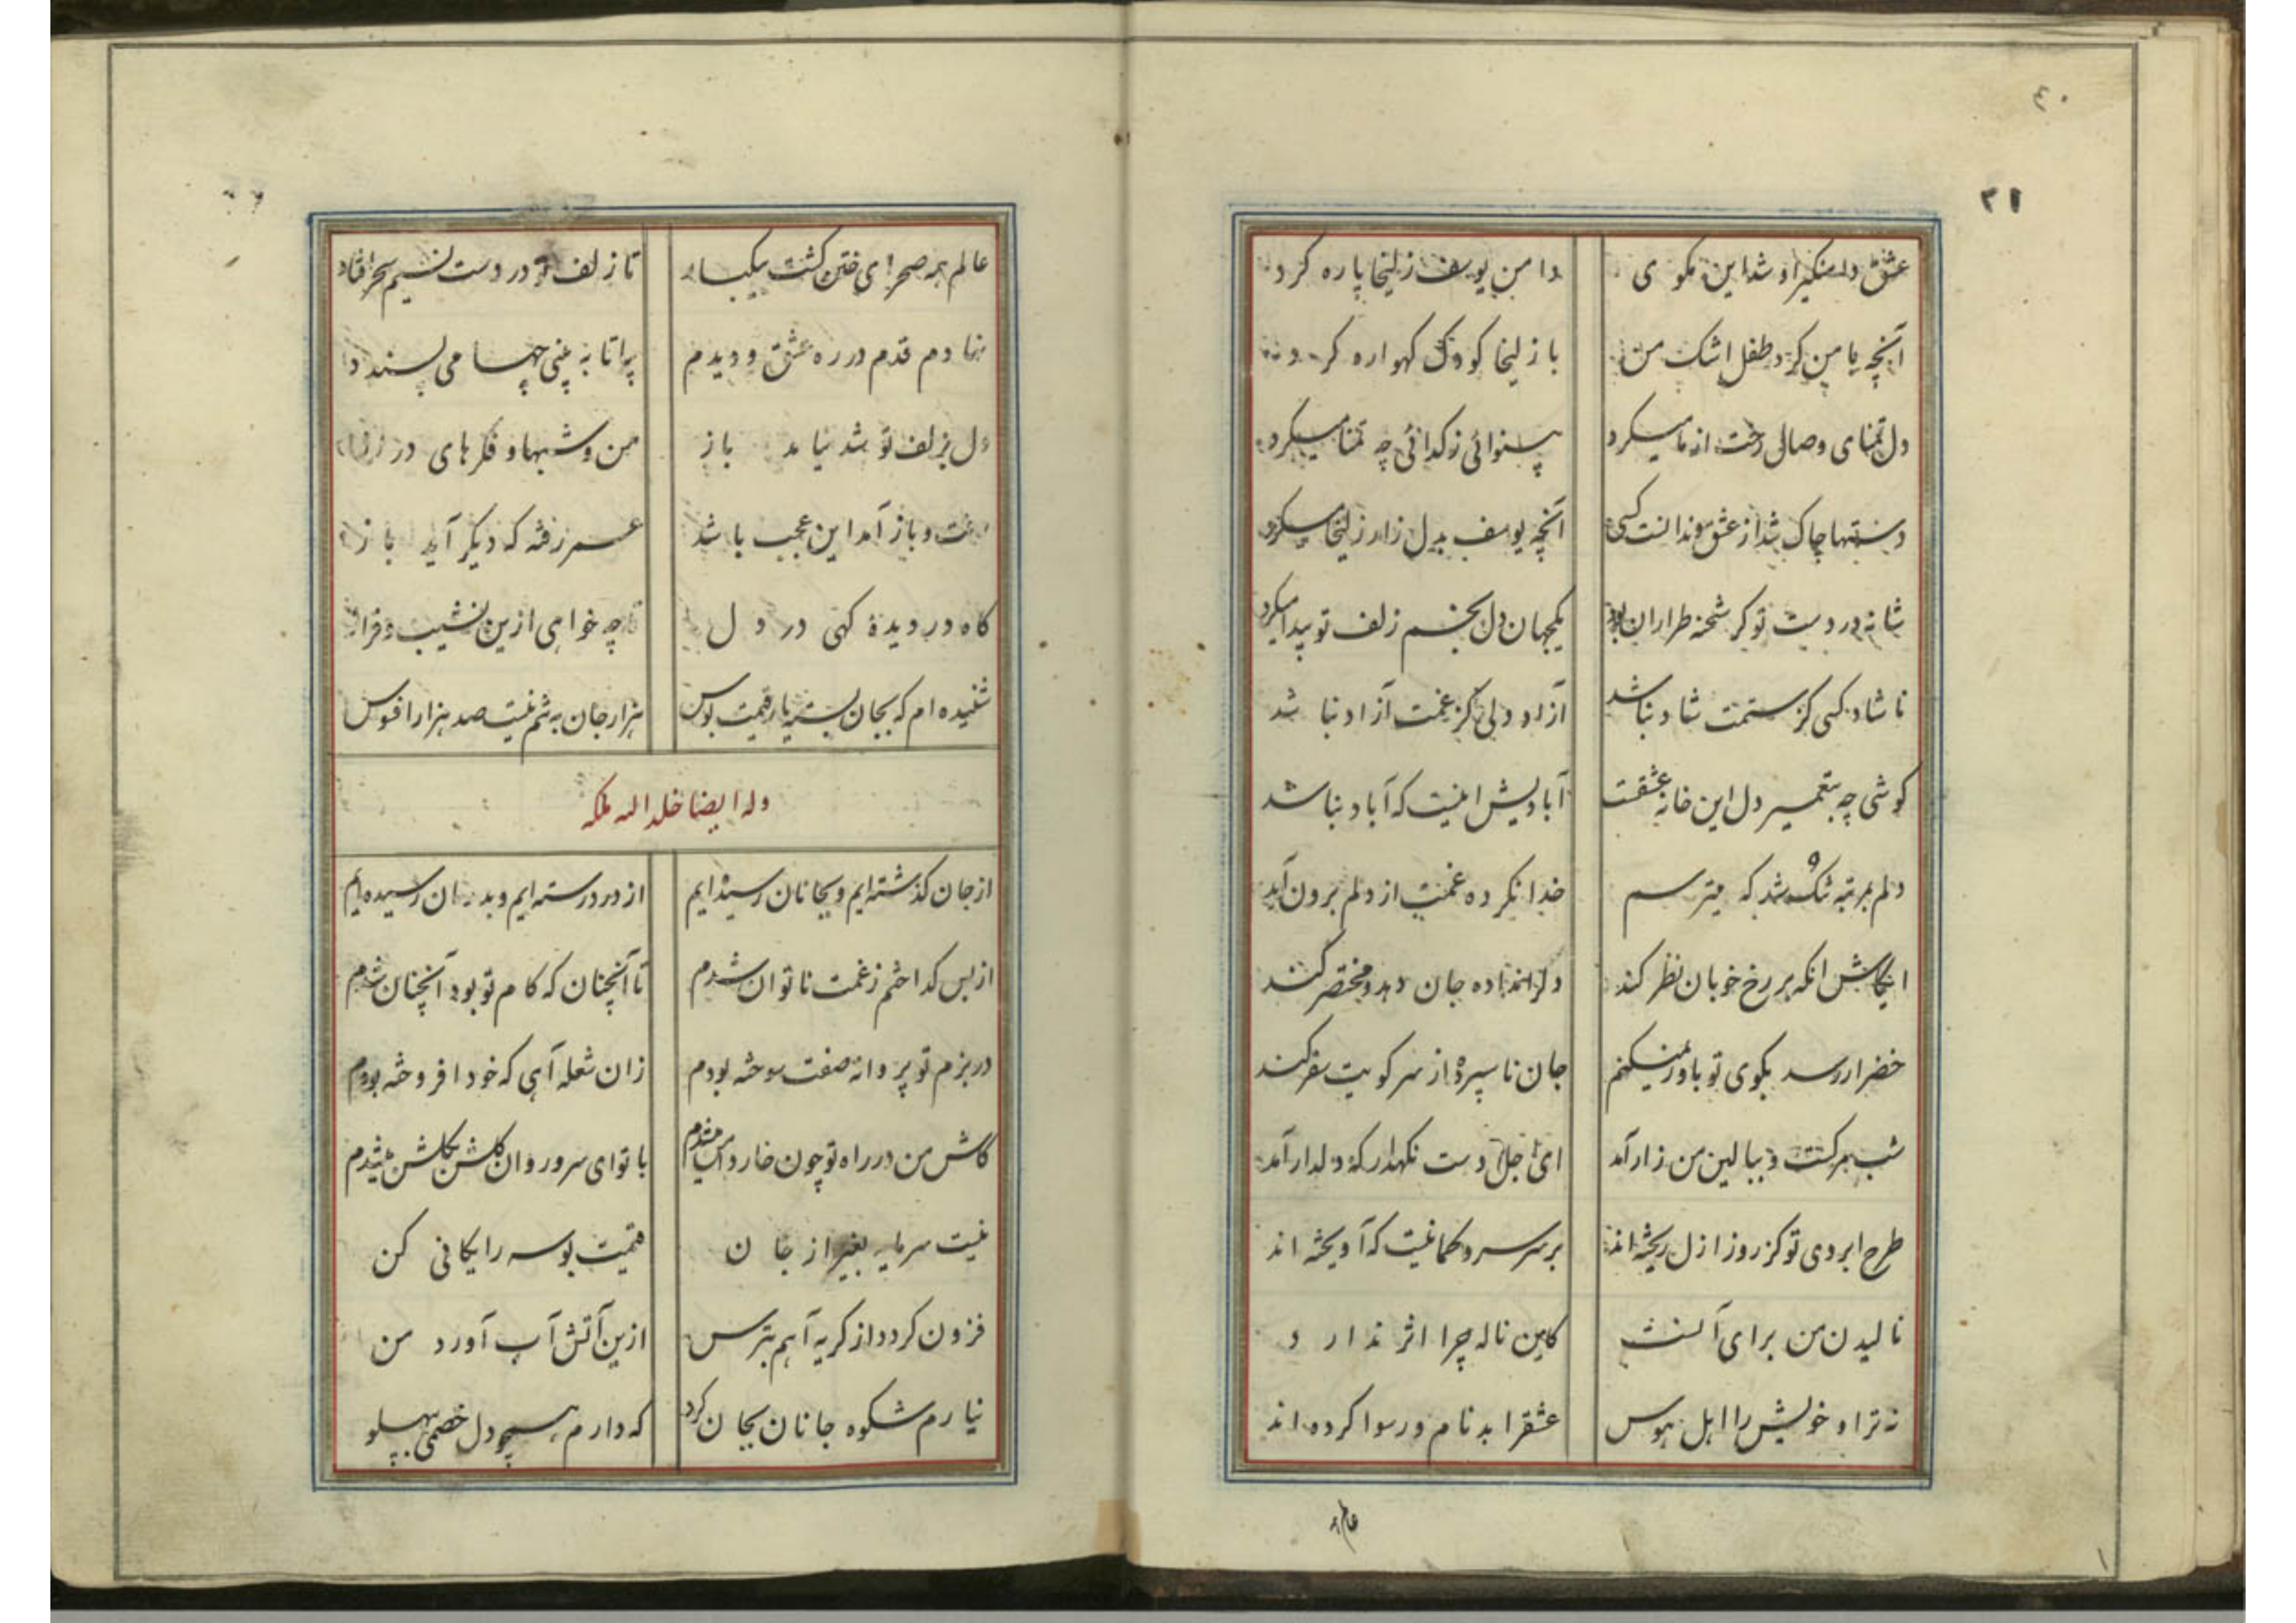 ۴۰
۳۱
عشق دامنگیر او شد این مکوی
دامن یوسف زلیخا پاره کرد
آنچه با من کرد طفل اشک من
با زلیخا کودک کهواره کرد
دل تمنای وصالی رخت از ما میکرد
بینوائی ز کدائی چه تمنا میکرد
دستها چاک شد از عشق و ندانست کسی
آنچه یوسف بدل زار زلیخا میکرد
شانه در دست تو کر شحنه طراران بود
یکجهان دل بخم زلف تو پیدا میکرد
ناشاد کسی کز ستمت شاد نباشد
آزاد دلی کز غمت آزاد نباشد
کوشی چه بتعمیر دل این خانه عشقست
آبادیش اینست که آباد نباشد
دلم بمرتبه تنک شد که میترسم
خدا نکرده غمت از دلم برون آید
ایکاش انکه بر رخ خوبان نظر کند
دل را نداده جان دهد و مختصر کند
خضر ار رسد بکوی تو باور نمیکنم
جان ناسپرده از سر کویت سفر کند
شب مرکست و ببالین من زار آمد
ای اجل دست نکهدار که دلدار آمد
طرح ابروی تو کز روز ازل ریخته اند
بر سر سرو کمانیست که آویخته اند
نالیدن من برای آنست
کاین ناله چرا اثر ندارد
نه ترا و خویش را اهل هوس
عشق را بدنام و رسوا کرده اند
عالم
عالم همه صحرای ختن کشت بیکبار
تا زلف تو در دست نسیم سحر افتاد
نهادم قدم در ره عشق و دیدم
چها تا به بینی چها می پسندد
دل بزلف تو شد نیامد باز
من و شبها و فکرهای دراز
رفت و باز آمد این عجب باشد
عمر رفته که دیکر آید باز
کاه در دیده کهی در دل
تا چه خواهی ازین نشیب و فراز
شنیده ام که بجان بسته یار قیمت بوس
هزار جان به تنم نیست صد هزار افسوس
وله ایضا خلد الله ملکه
از جان کذشته ایم و بجانان رسیده ایم
از درد رسته ایم و بدرمان رسیده ایم
از بس کداختم ز غمت ناتوان شدم
تا آنچنان که کام تو بود آنچنان شدم
در بزم تو پروانه صفت سوخته بودم
زان شعله آهی که خود افروخته بودم
کاش من در راه تو چون خار و خس میشدم
با تو ای سرو روان کلشن بکلشن میشدم
نیست سرمایه بغیر از جان
قیمت بوسه رایکانی کن
فزون کردد از کریه آهم بترس
ازین آتش آب آورد من
نیارم شکوه جانان بجان کرد
که دارم همچو دل خصمی بپهلو